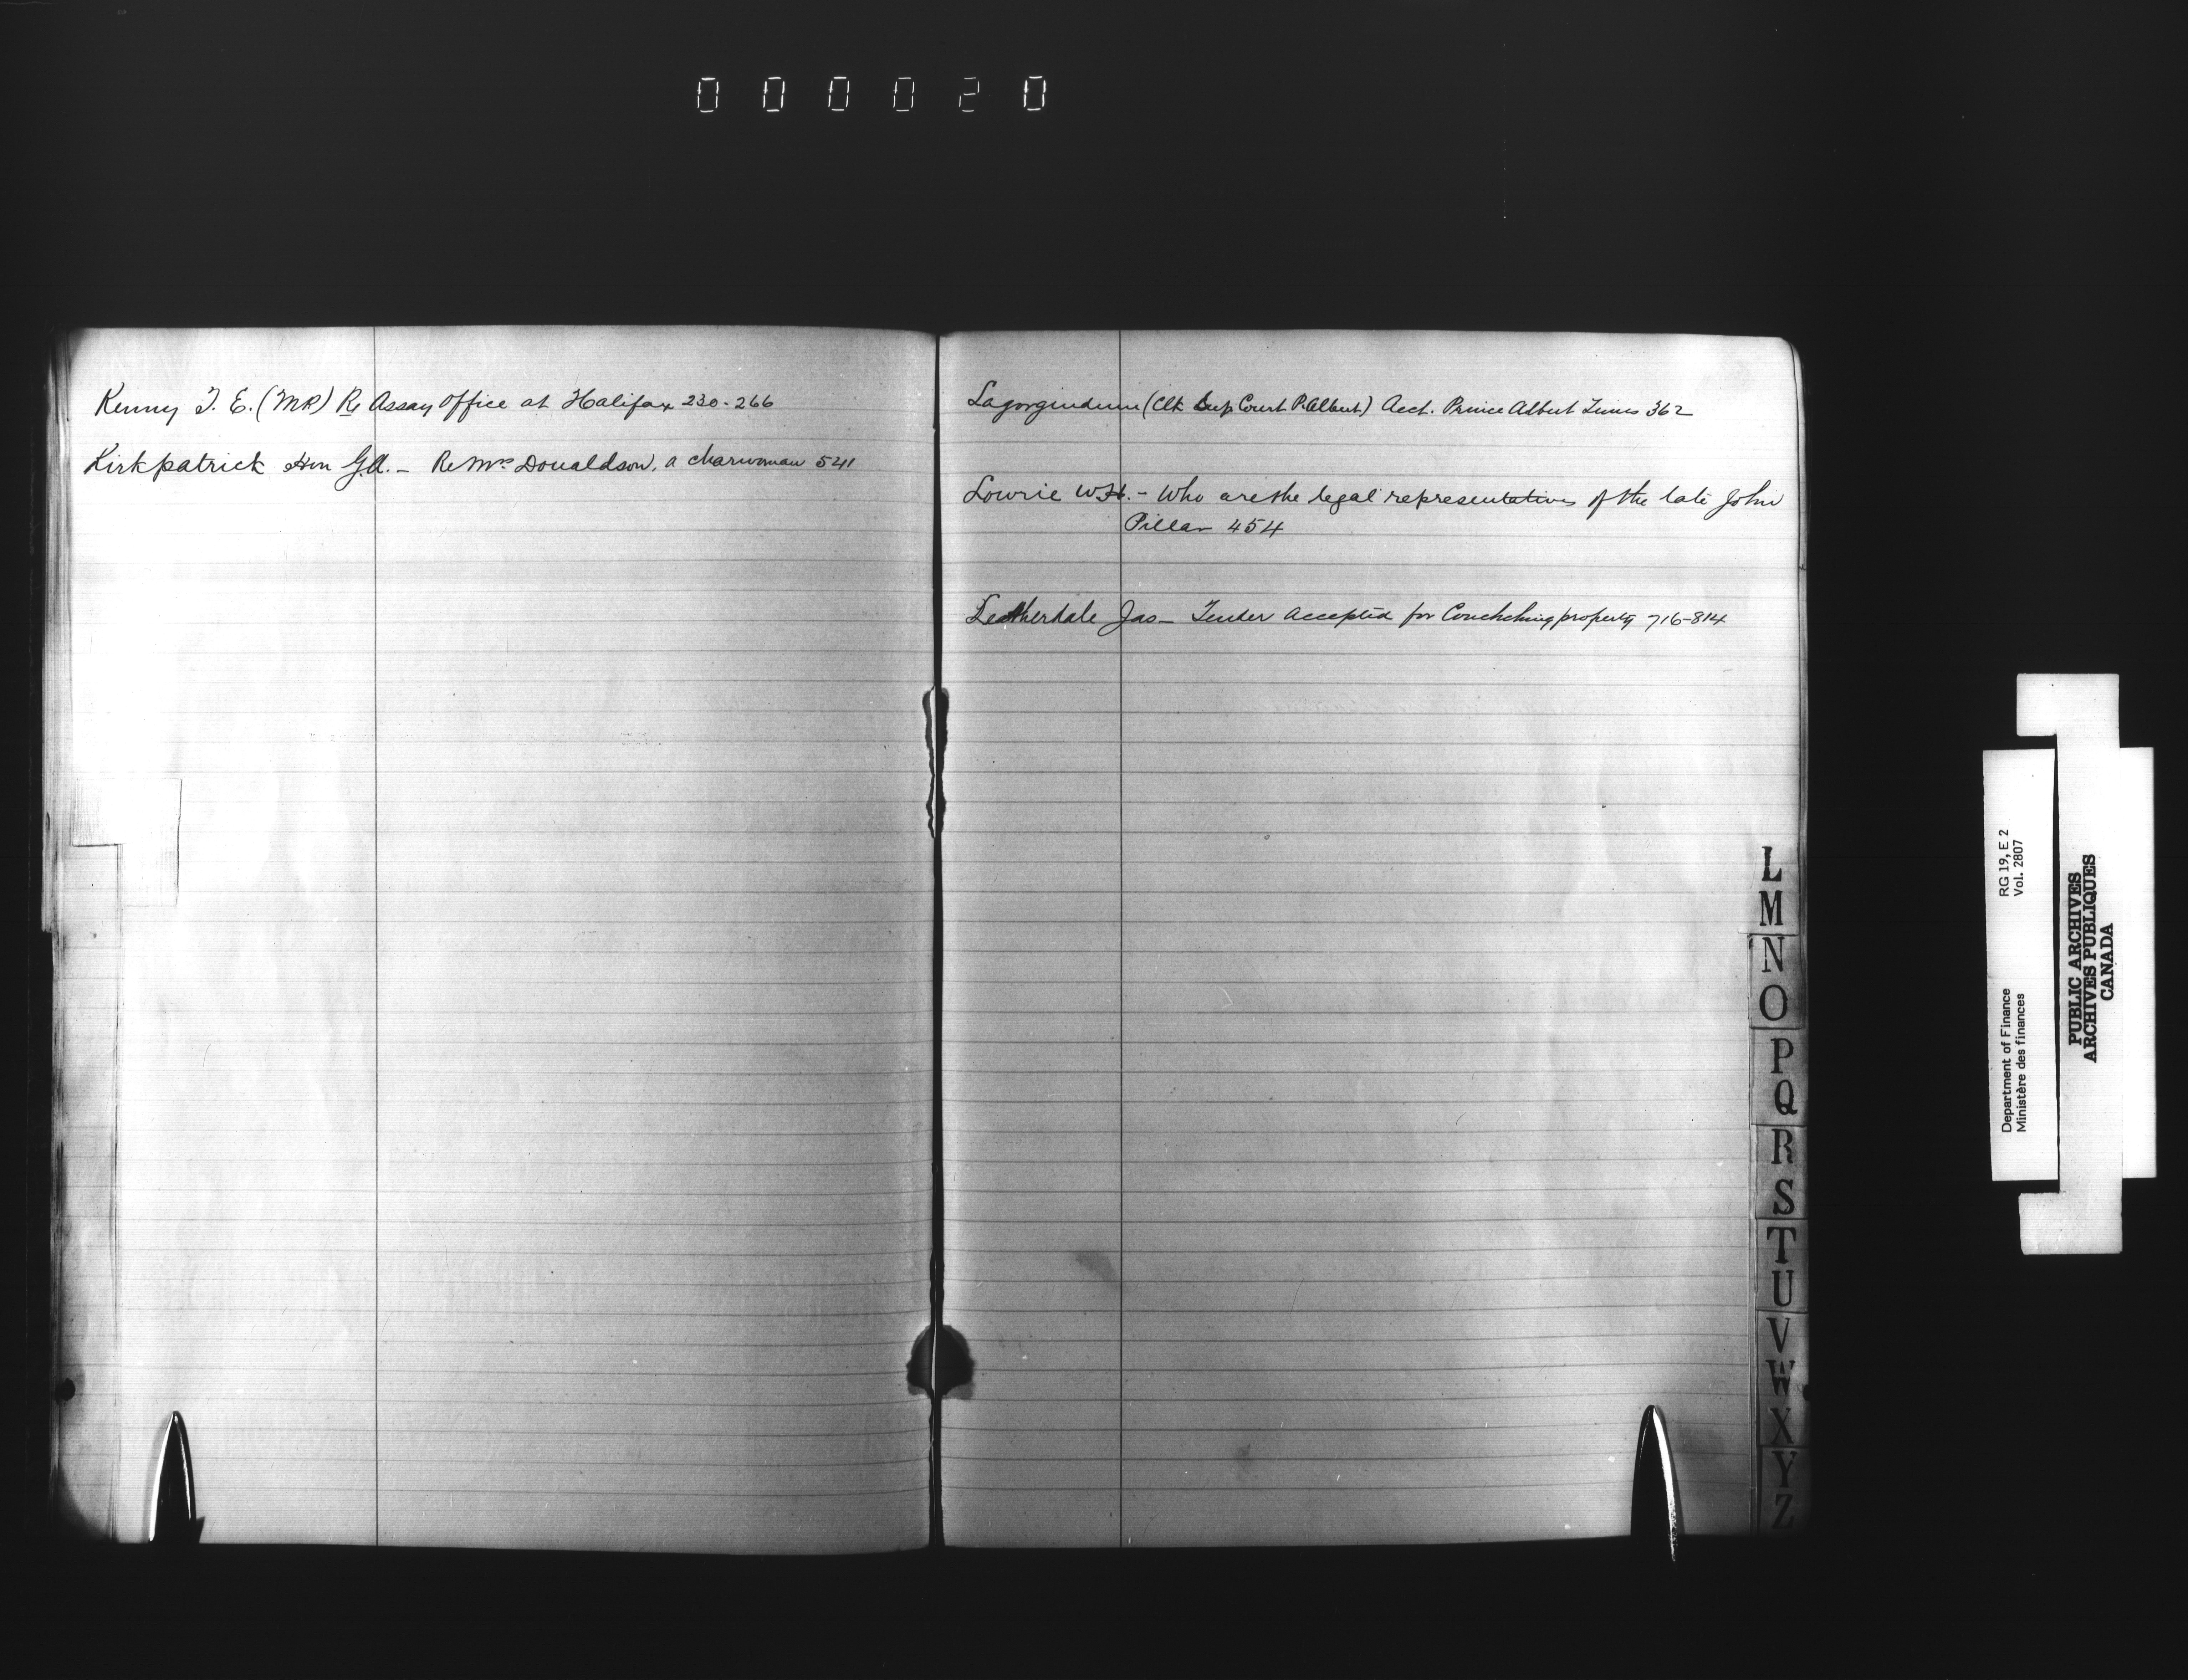 000020
Kenny T. E. (MP) Re Assay Office at Halifax 230-266
Kirkpatrick Hon G.A. - Re Mrs Donaldson, a charwoman 541
(Clk Sup Court P. Albert) Acct. Prince Albert Times 362
Lowrie W.H. - Who are the legal representatives of the late John
Pillar 454
Leatherdale Jas - Tender accepted for Couchiching property 716-814
L
M
N
O
P
Q
R
S
T
U
V
W
X
Y
Z
Department of Finance RG 19, E 2
Ministère des finances Vol. 2807
PUBLIC ARCHIVES
ARCHIVES PUBLIQUES
CANADA